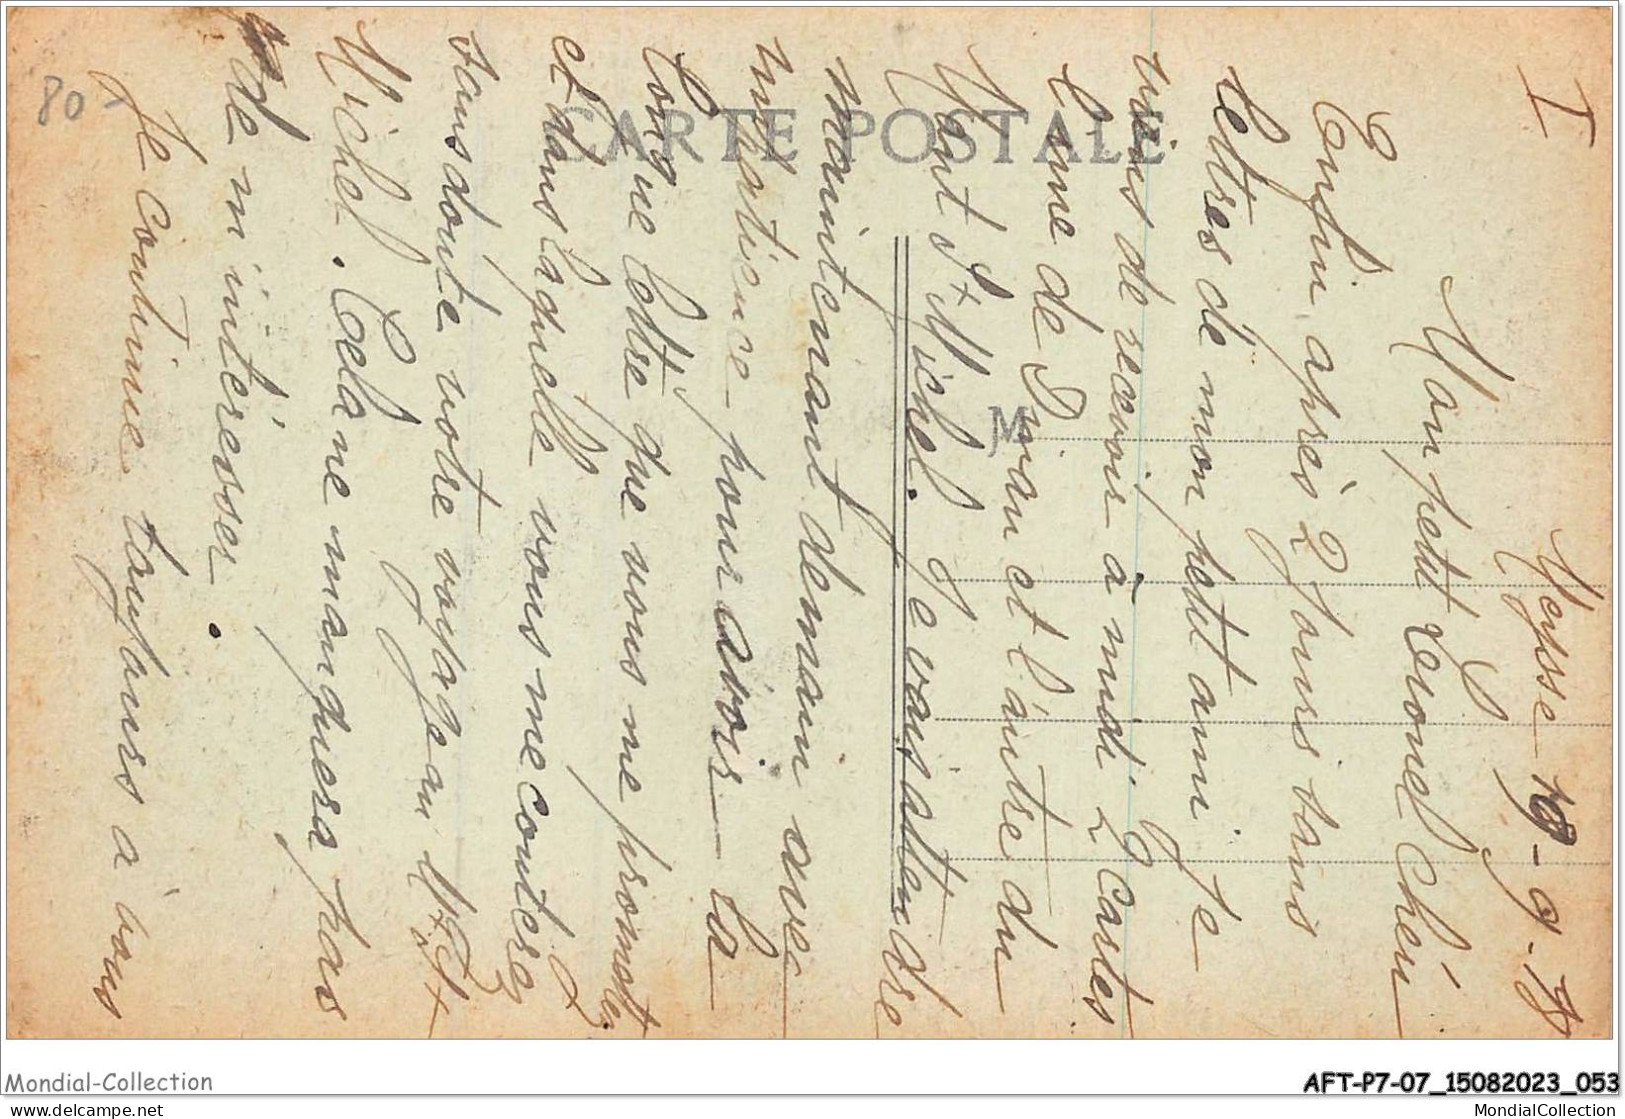 I
Meysse 19-9-18
Mon petit Lionel Chéri
Enfin après 2 jours sans
lettres de mon petit ami je
viens de recevoir à midi 2 cartes
l'une de Dinan et l'autre du
Mont St Michel. Je vais attendre
maintenant demain avec
impatience pour avoir la
longue lettre que vous me promettez
et dans laquelle vous me conterez
sans doute votre voyage au Mt St
Michel. Cela ne manquera pas
de m'intéresser.
Je continue toujours à vous
CARTE POSTALE
M
80-
Mondial-Collection
AFT-P7-07_15082023_053
https://www.delcampe.net
MondialCollection